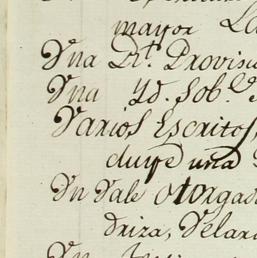 mayor La
Una Dit. Provisi
Una Yd. Sob.e
Varios Escritos,
duise una
Un Vale otorgad
driza, Velard
Un